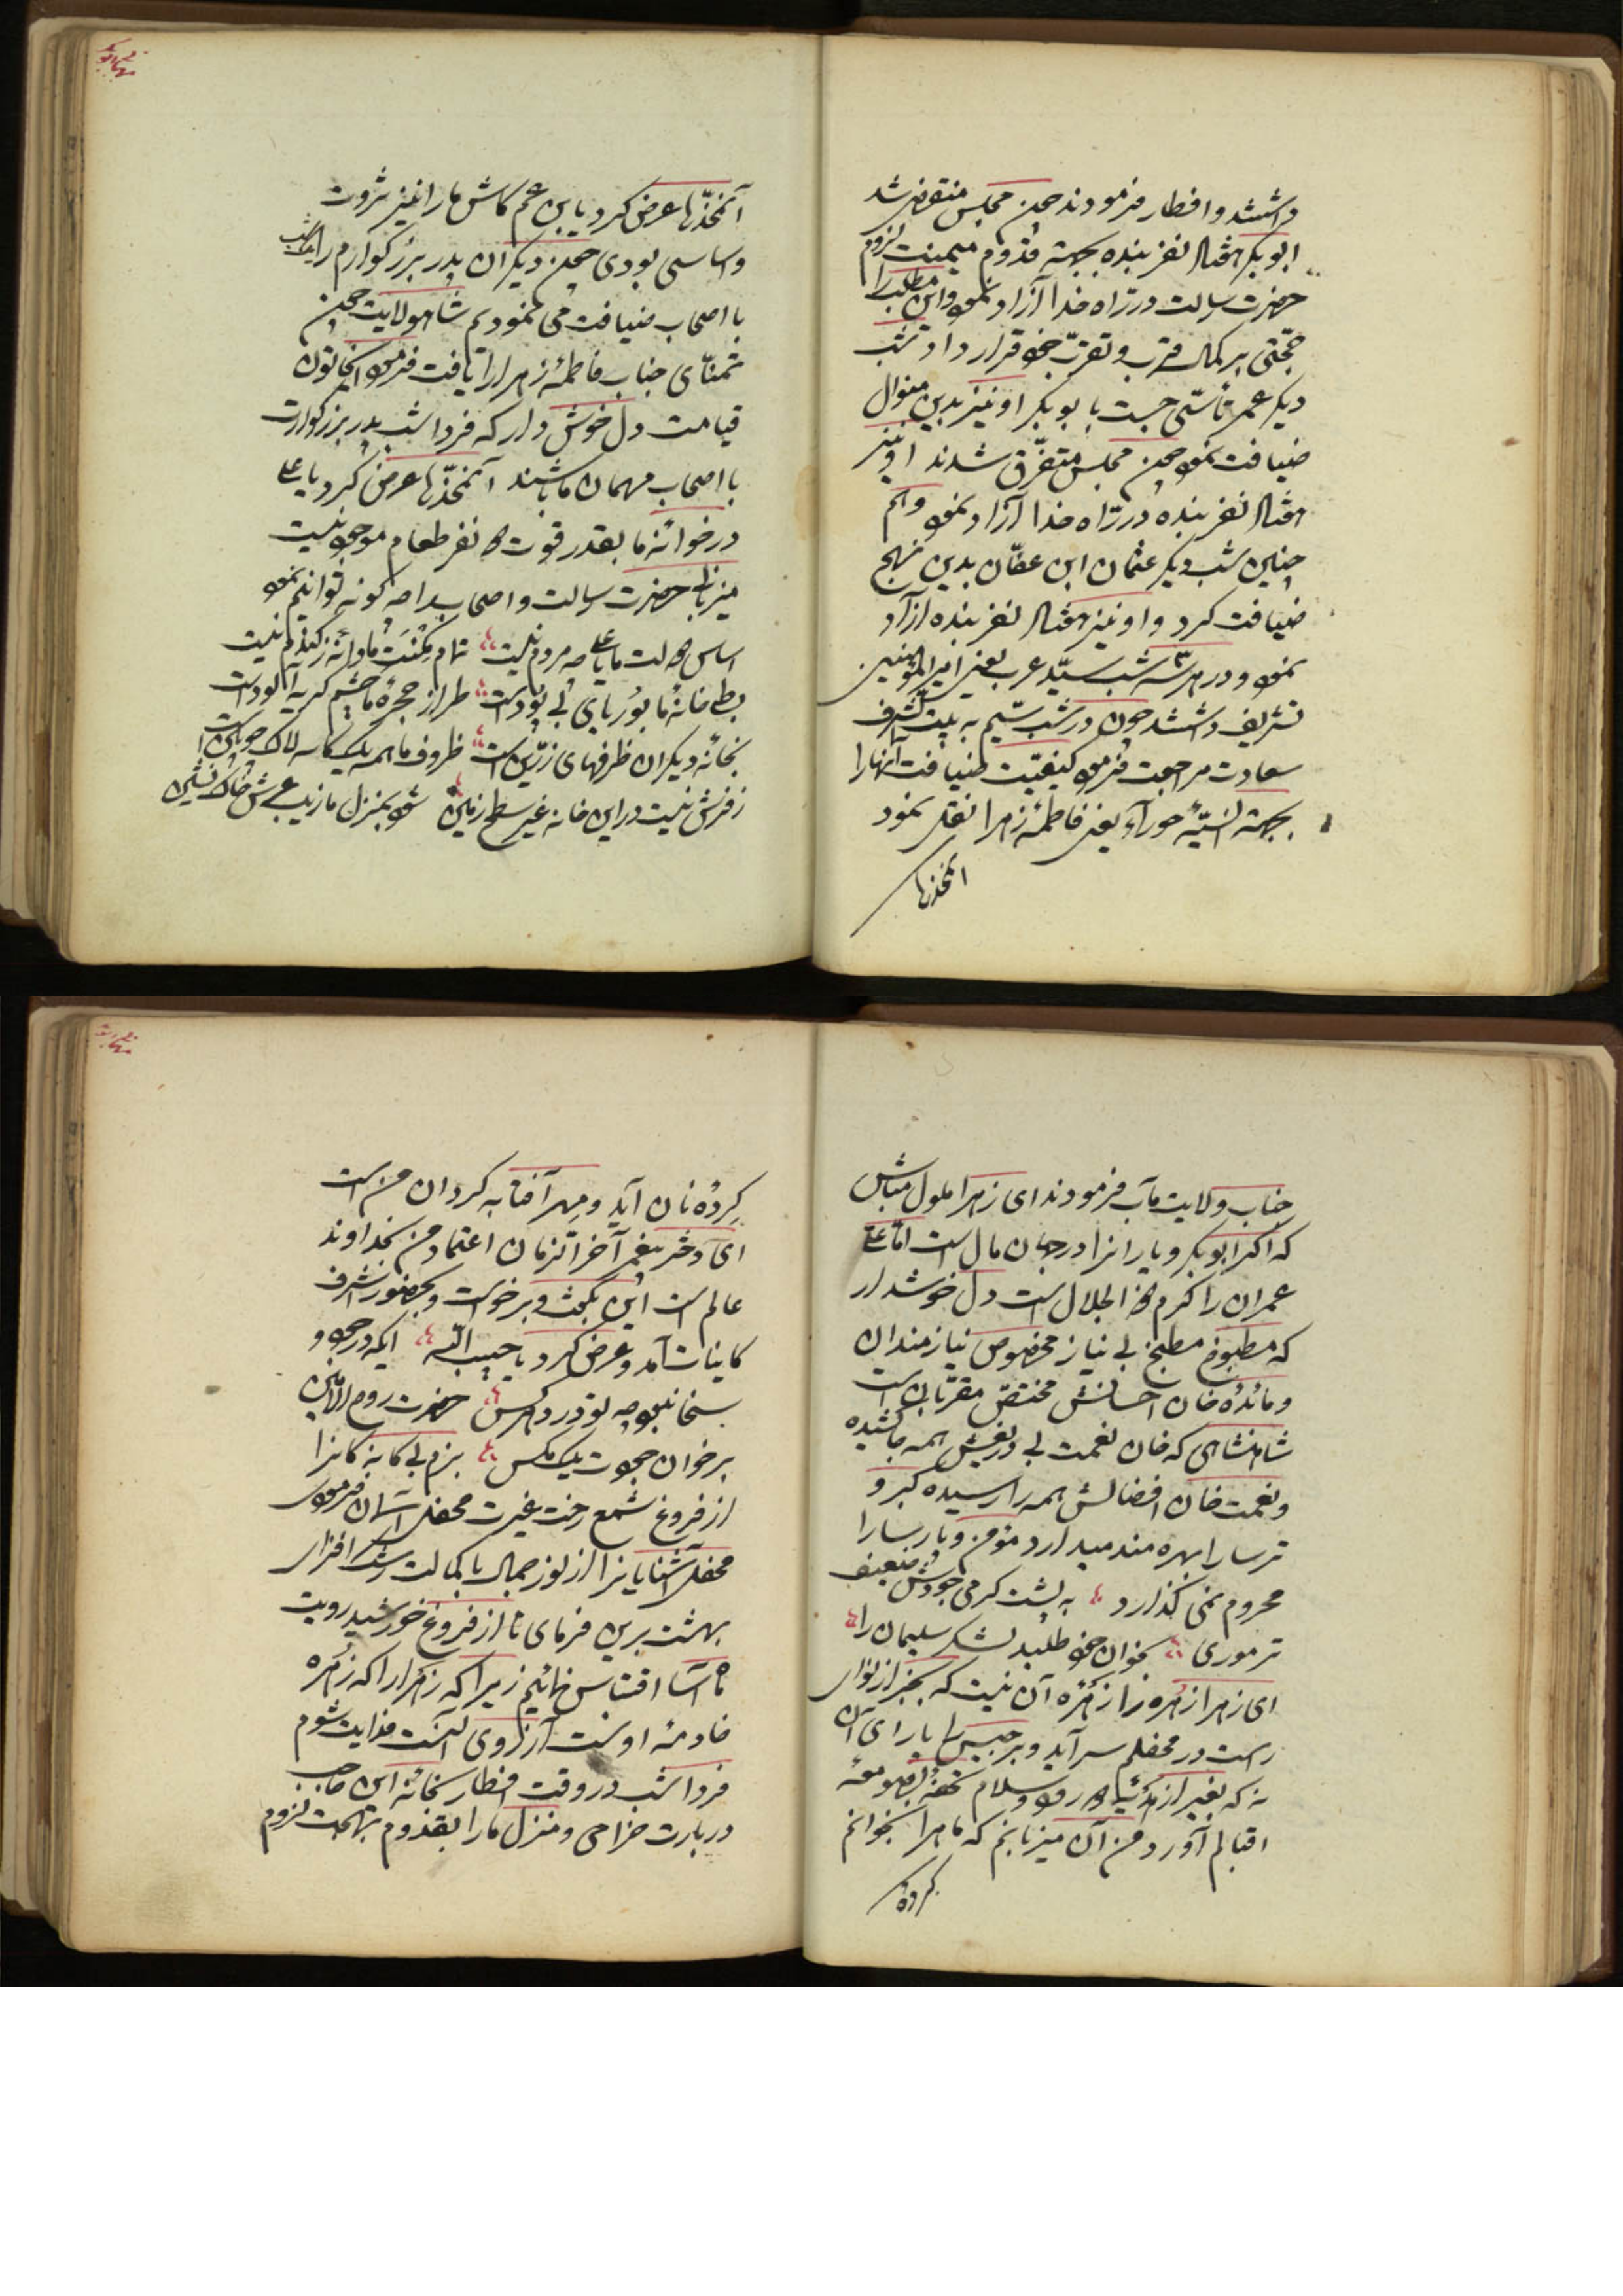 داشتند و افطار فرمودند چون مجلس منقضی شد
ابوبکر هفتاد نفر بنده بجهة قدوم میمنت لزوم
حضرت رسالت در راه خدا آزاد نمود و این مطلب را
حجتی بر کمال قرب و تقرّب خود قرار داد و شب
دیگر عمر تأسّی جست با بوبکر او نیز بدین منوال
ضیافت نمود چون مجلس متفرّق شدند او نیز
هفتاد نفر بنده در راه خدا آزاد نمود و هم
چنین شب دیگر عثمان ابن عفّان بدین نهج
ضیافت کرد و او نیز هفتاد نفر بنده آزاد
نمود و در هر سه شب سیّد عرب یعنی امیر المؤمنین
تشریف داشتند چون در شب سیّم به بیت الشرف
سعادت مراجعت فرمود کیفیّت ضیافت آنها را
بجهة انسیّهٔ حورآء یعنی فاطمهٔ زهرا نقل نمود
انمخذرها
آنمخذّرها عرض کرد یابن عم کاش ما را نیز ثروت
و اساسی بودی چون دیگران پدر بزرگوارم را یکشب
با اصحاب ضیافت می نمودیم شاه ولایت چون
تمنّای جناب فاطمهٔ زهرا را یافت فرمود ایخاتون
قیامت دل خوش دار که فردا شب پدر بزرگوارت
با اصحاب مهمان ما باشند آنمخذّرها عرض کرد یا علی
در خوانهٔ ما بقدر قوت ده نفر طعام موجود نیست
میزبانی حضرت رسالت و اصحاب را چه گونه توانیم نمود
اساس دولت ما یا علی چه مردم نیست تمام مکنت ما دانهٔ ز گندم نیست
بط خانهٔ ما بوریای بی پود است طراز حجرهٔ ما چشم گریه آلود است
بخانه دیگران ظرفهای زرّین است ظروف ما همه یک کاسه لاک چوبین است
ز فرش نیست در این خانه غیر سطح زمین شود بمنزل ما زیب عرش خاک نشین
جناب ولایت مآب فرمودند ای زهرا ملول مباش
که اگر ابوبکر و یارانرا در جهان مال است امّا علی
عمران را کرم ذو الجلال است دل خوشدار
که مطبوخ مطبخ بی نیاز مخصوص نیازمندان
و مائدهٔ خان احسانش مختصّ مقرّبان است
شاهنشاهی که خان نعمت بی دریغش همه جا کشیده
و نعمت خان افضالش همه را رسیده گبر و
ترسا را بهره مند میدارد مؤمن و پارسا را
محروم نمی گذارد به پشت گرمی جودش ضعیف
تر موری بخوان خود طلبد لشکر سلیمان را
ای زهرا از زهره مرا زهره آن نیست که بجز از نوای
راست در محفلم سرآید و برجیس را یارای آن
نه که بغیر از درود و سلام تحفهٔ بصومعه
اقبالم آورد من آن میزبانم که ماه را بخوانم
کرده
گردهٔ نان آید و مهر آفتابه گردان من است
ای دختر پیغمبر آخر الزمان اعتماد من بخداوند
عالم است این بگفت و برخواست و بحضور اشرف
کاینات آمد و عرض کرد یا حبیب اللّه ایکه در جود و
سخا نبود چه تو در دهر کس حضرت روح الامین
بر خوان جودت یک مگس بزم بی گانه گانرا
از فروغ شمع رخت غیرت محفل آسمان فرمودی
محفل آشنایانرا از نور جمال با کمالت رشک افزای
بهشت برین فرمای تا از فروغ خورشید رویت
ماه آسا اقتباس نمائیم زیرا که زهرا را که زهره
خادمهٔ اوست آرزوی اینست فدایت شوم
فردا شب در وقت افطار بخانهٔ این صاحب
دربارت خرامی و منزل ما را بقدوم بهجت لزوم